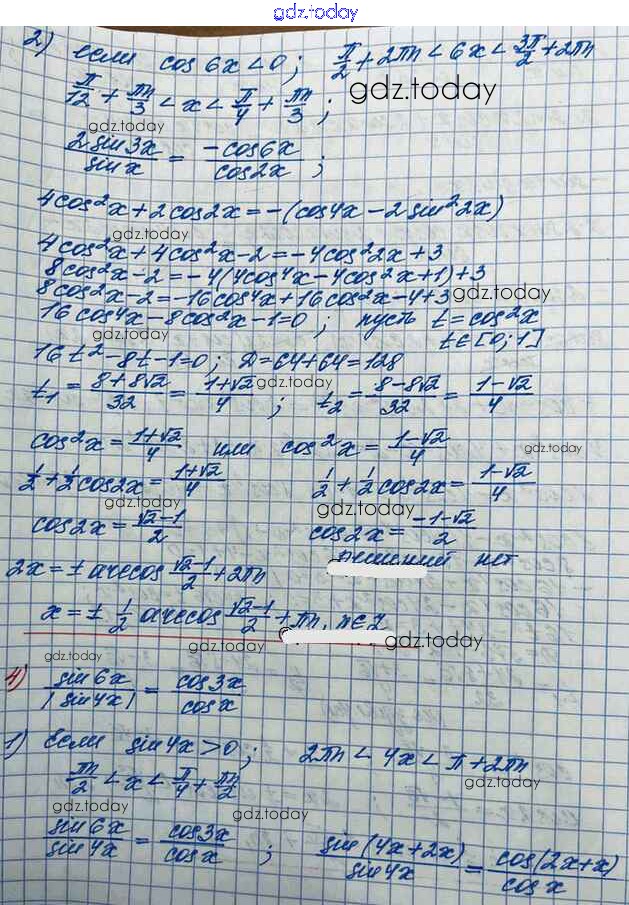 gdz.today
2) если cos6x<0; π/2+2πn<6x<3π/2+2πn
gdz.today
π/12+πn/3<x<π/4+πn/3;
gdz.today
2sin3x/sinx = -cos6x/cos2x;
4cos²x+2cos2x=-(cos4x-2sin²2x)
gdz.today
4cos²x+4cos²x-2=-4cos²2x+3
8cos²x-2=-4(4cos⁴x-4cos²x+1)+3
8cos²x-2=-16cos⁴x+16cos²x-4+3
16cos⁴x-8cos²x-1=0; пусть t=cos²x
gdz.today
t∈[0;1]
16t²-8t-1=0; D=64+64=128
gdz.today
t₁=8+8√2/32=1+√2/4; t₂=8-8√2/32=1-√2/4
cos²x=1+√2/4 или cos²x=1-√2/4
gdz.today
1/2+1/2cos2x=1+√2/4 1/2+1/2cos2x=1-√2/4
gdz.today
gdz.today
cos2x=√2-1/2 cos2x=-1-√2/2
2x=±arccos√2-1/2+2πn решений нет
gdz.today
x=±1/2arccos√2-1/2+πn, n∈Z
gdz.today
gdz.today
gdz.today
4) sin6x/|sin4x|=cos3x/cosx
1) Если sin4x>0; 2πn<4x<π+2πn
πn/2<x<π/4+πn/2
gdz.today
gdz.today
sin6x/sin4x=cos3x/cosx; sin(4x+2x)/sin4x=cos(2x+x)/cosx
gdz.today
gdz.today